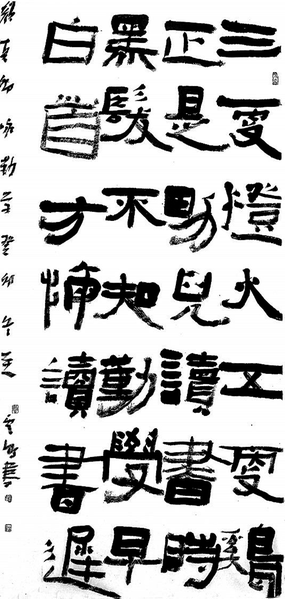 三更燈火五更鷄
正是男兒讀書時
黑髮不知勤學早
白首方悔讀書遲
顏真卿詠勤學癸卯